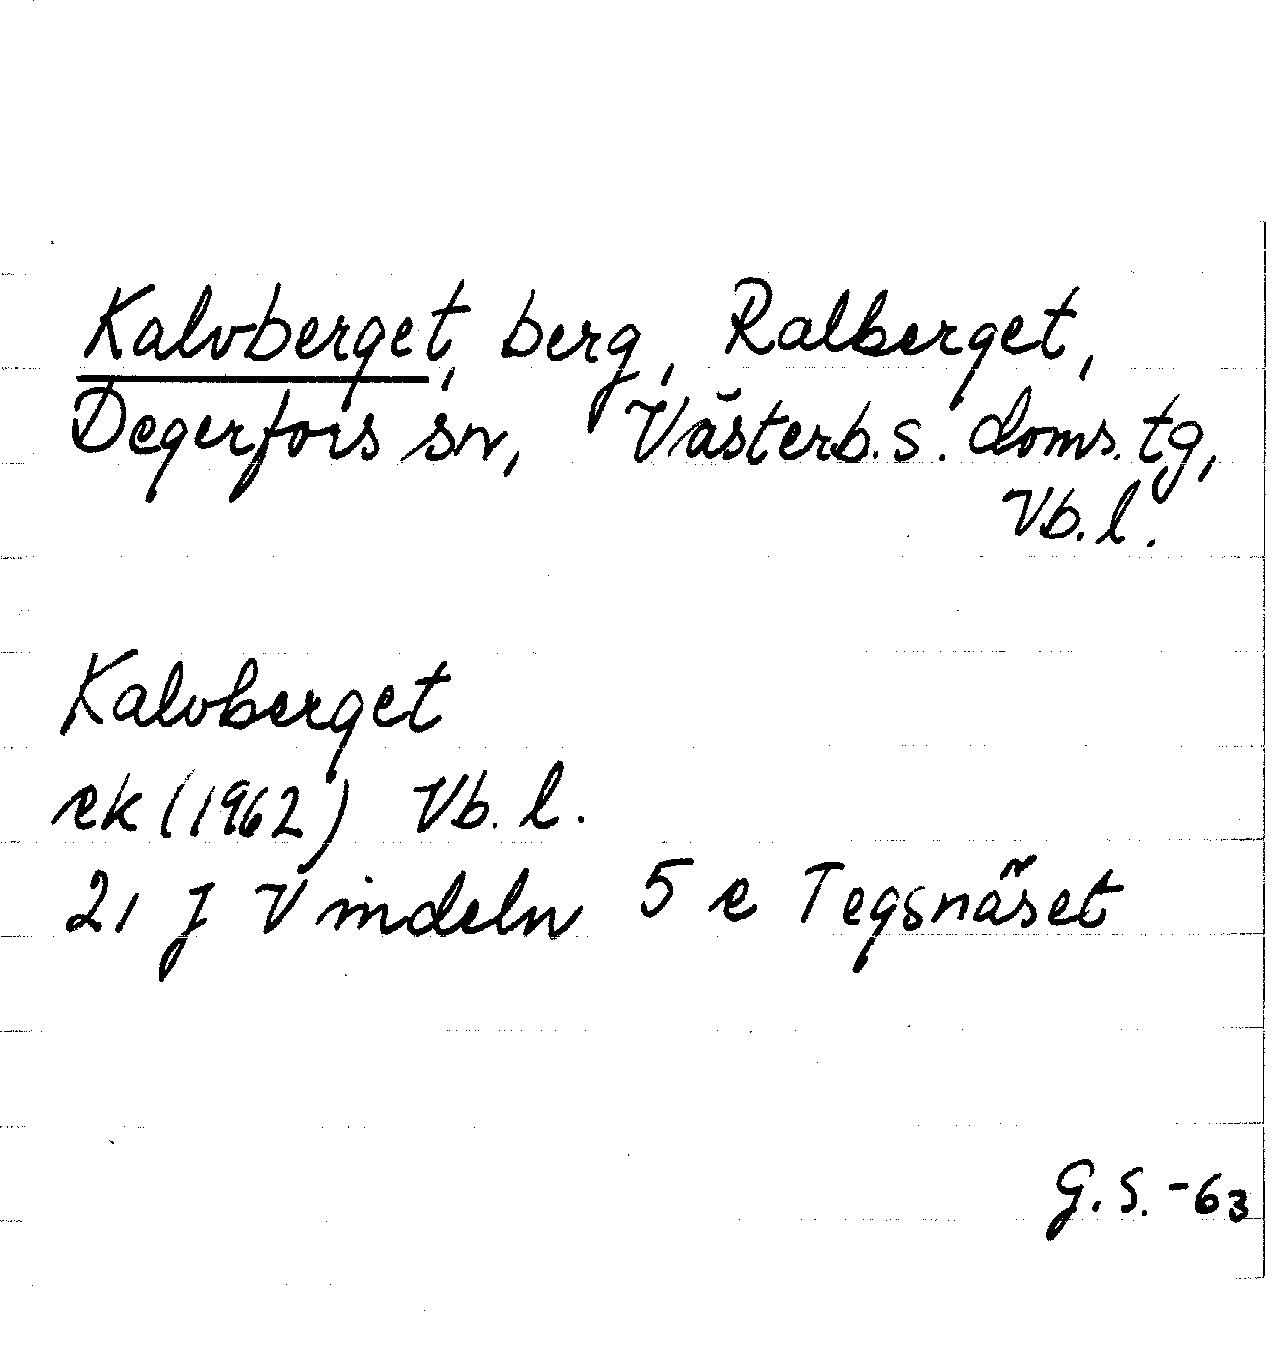 Kalvberget, berg, Ralberget,
Degerfors sn, Västerb.s. doms.tg,
Vb.l.
Kalvberget
ek (1962) Vb.l.
21 J Vindeln 5 e Tegsnäset
G.S.-63